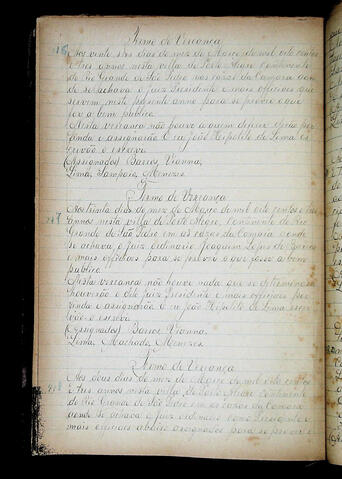 Termo de Vereança
Aos vinte e tres dias do mez de Março de mil oito centos
e tres annos nesta villa de Porto Alegre Continente
do Rio Grande de São Pedro nas casas da Camara aon
de se achava o juiz Presidente e mais officiaes que
servem neste presente anno para se prover o que
for a bem publico.
Nesta vereança não houve a quem
e assignarão E eu João Hipolito de Lima es
crivão o escrevi
(Assignados) Barros, Vianna,
Lima, Sampaio, Menezes
Termo de Vereança
117 Aos trinta dias do mez de Março de mil oito centos e tres
annos nesta villa de Porto Alegre, Continente do Rio
Grande de São Pedro em as cazas da Camara aonde
se achava o juiz ordinario Joaquim Lopes de Barros
e mais officiaes para se prover o que fosse a bem
publico.
Nesta vereança não houve nada que se determinasse
o dito juiz Presidente e mais officiaes
e assignarão E eu João Hipolito de Lima escri
vão o escrevi
(Assignados) Barros, Vianna,
Lima, Machado, Menezes
Termo de Vereança
118 Aos dous dias do mez de de mil oito centos
e tres annos nesta villa de Porto Alegre continente
do Rio Grande de São Pedro em as cazas da Camara
aonde se achava o juiz ordinario como Presidente e
mais officiaes abaixo assignados para se prover o